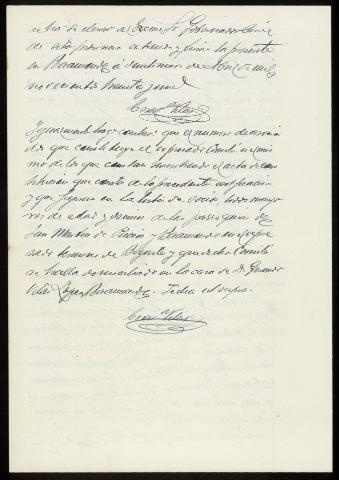 ha de elevar al Excmo Sr Gobernador Civil
de esta provincia extiendo y firmo la presente
en Baamonde á veintinueve de Abril de mil
novecientos treinta y uno
Cesar Vilar
Igualmente hago constar: que el numero de asocia
dos que constituyen el expresado Comité es el mis
mo de los que constan suscribiendo el acta de cons
titución que consta de la precedente certificación
y que figuran en la lista de socios, todos mayo
res de edad y vecinos de las parroquias de
San Martin de Pacios y Baamonde en el expre
sado termino de Begonte y que dicho Comité
se halla domiciliado en la casa de D.
Vilar López, Baamonde. Fecha ut supra.
Cesar Vilar